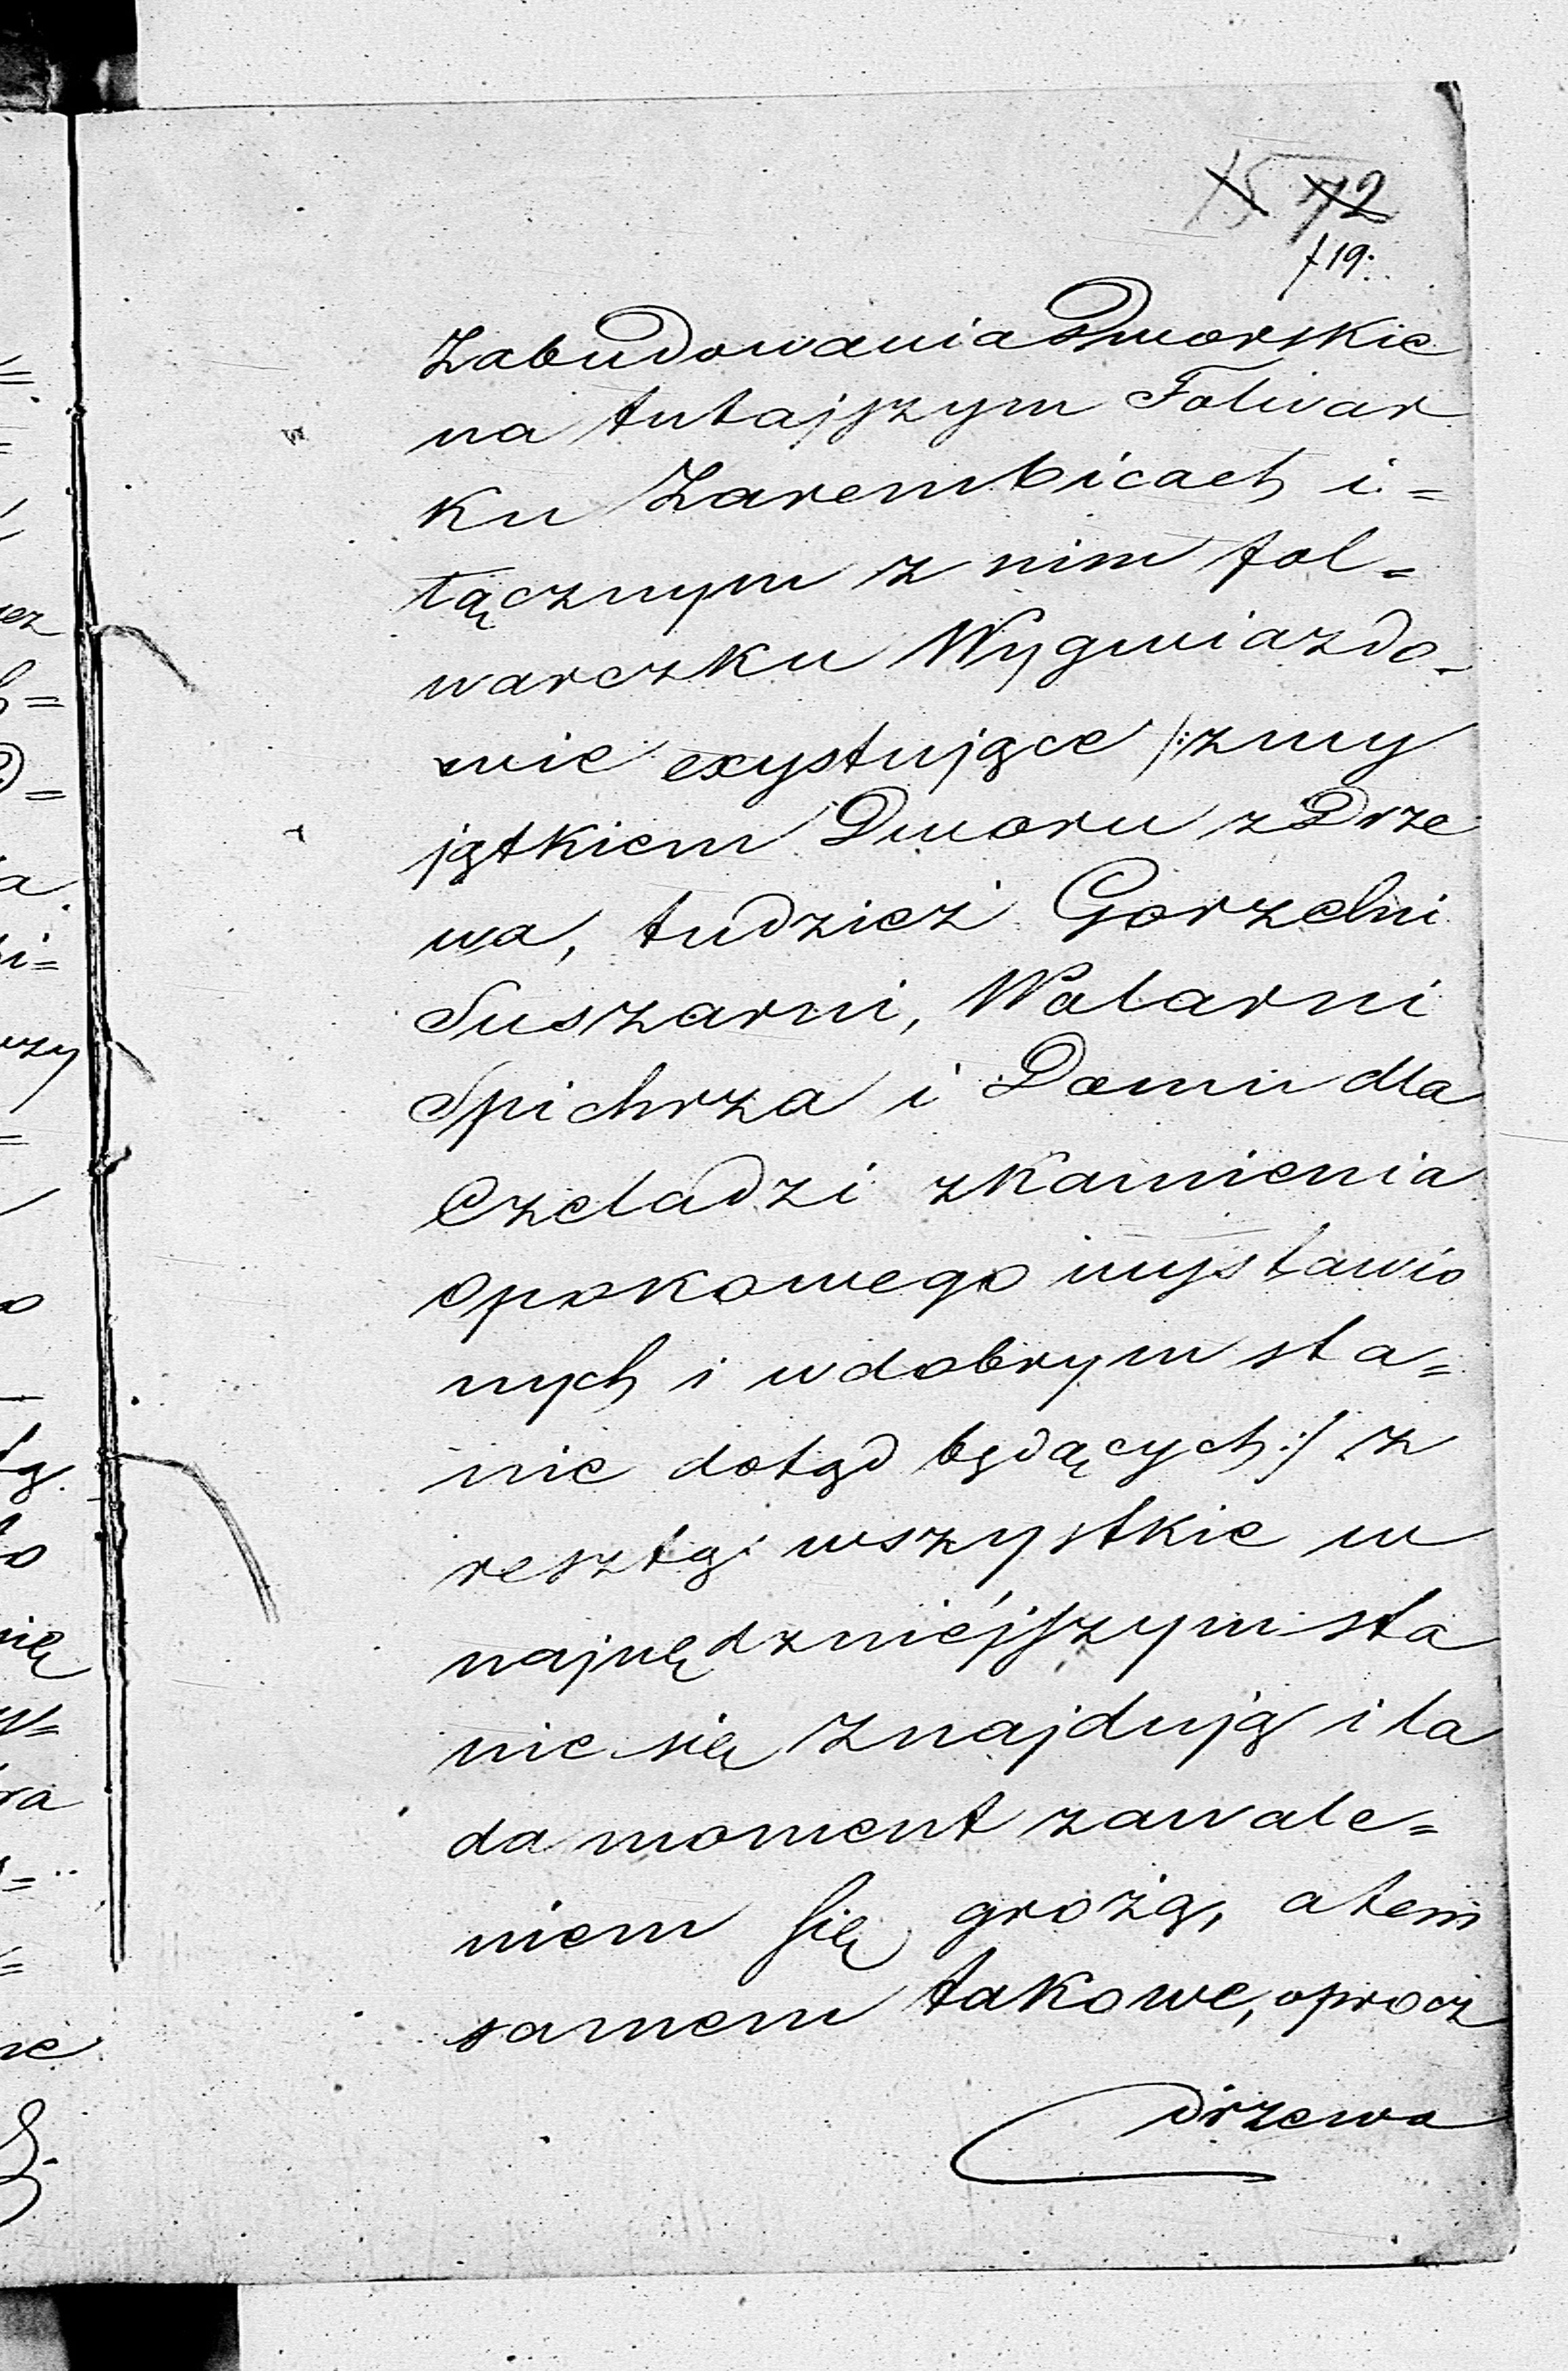 15 72
119.
Zabudowania Dworskie
na tutajszym Folwar
ku Zarembicach i=
łącznym z nim fol=
warczku Wygwiazdo-
wie exystujące /:z wy
jątkiem Dworu z Drze
wa, tudzież Gorzelni
Suszarni, Wolarni
Spichrza i Domu dla
Czeladzi z Kamienia
opokowego wystawio
nych i w dobrym sta=
nie dotąd będących:/ z
resztą wszystkie w
najnędzniéjszym sta
nie się znajdują i la
da moment zawale=
niem się grożą, a tem
samem takowe, oprocz
drzewa